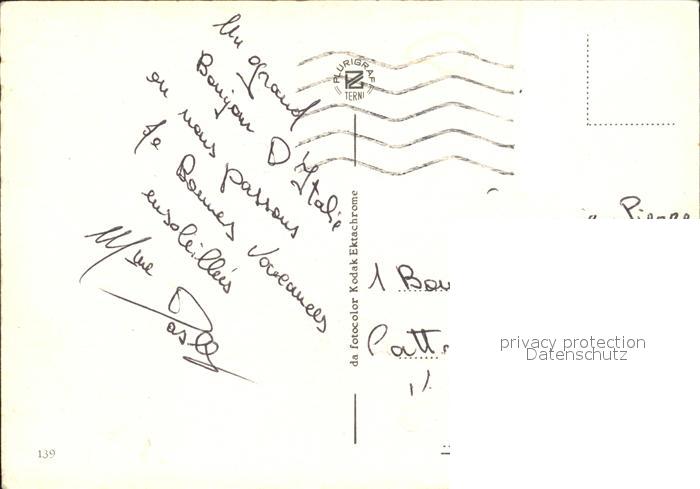 Un grand
Bonjour D'Italie
ou nous passons
de Bonnes Vacances
ensoleillées
Mme
PLURIGRAF
TERNI
da fotocolor Kodak Ektachrome
Pierre
1 Bou
Patt
139
privacy protection
Datenschutz